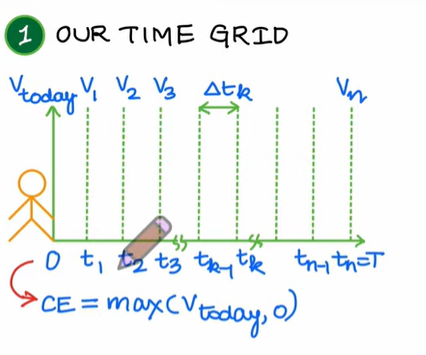 1 OUR TIME GRID
V_today V_1 V_2 V_3 Δt_k V_n
0 t_1 t_2 t_3 t_{k-1} t_k t_{n-1} t_n=T
CE = max(V_today, 0)